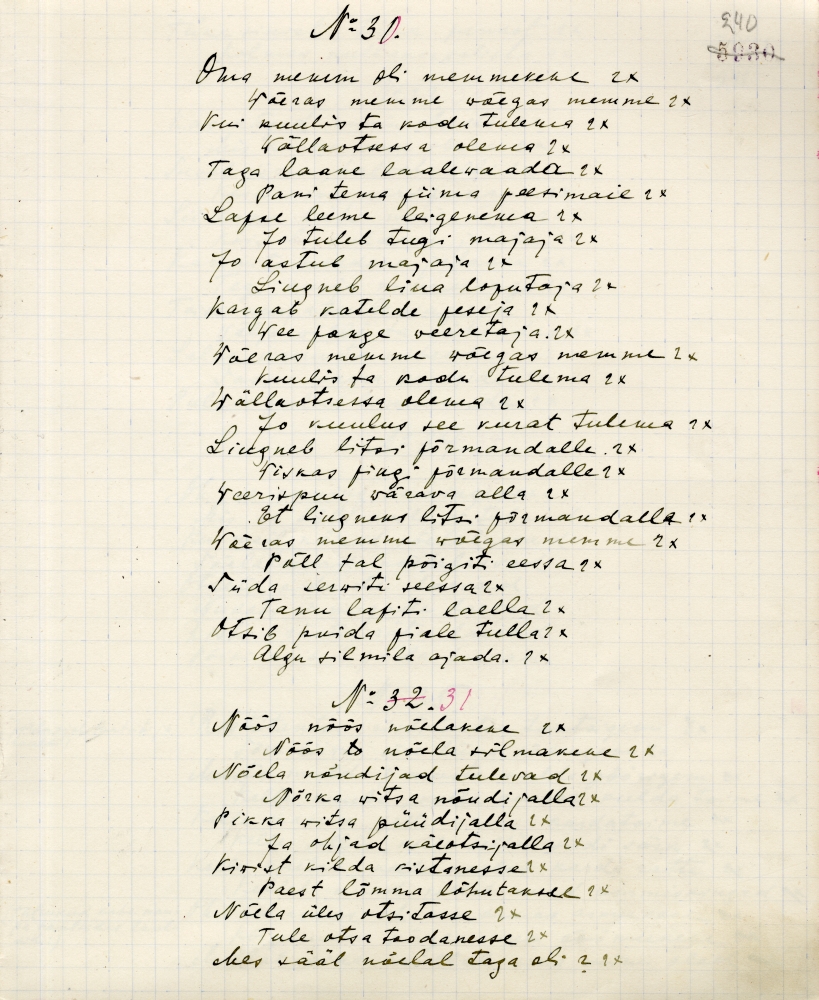 № 30.
240
5030
Oma memm oli memmekene 2x
Wõeras memme wõegas memme 2x
Kui kuulis ta kodu tulema 2x
Wällaotsessa olema 2x
Taga laane laalewaada 2x
Pani tema piima peesimaie 2x
Lapse leeme leigenema 2x
Jo tuleb tugi majaja 2x
Jo astub majaja 2x
Lingneb liua loputaja 2x
Kargab katelde peseja 2x
Wee pange weeretaja. 2x
Wõeras memme wõegas memme 2x
Kuulis ta kodu tulema 2x
Wällaotsessa olema 2x
Jo kuulus see kurat tulema 2x
Lingneb litsi põrmandalle. 2x
Wiskas pingi põrmandalle 2x
Weerispuu wärava alla 2x
Et lingneks litsi põrmandalla 2x
Wõeras memme wõegas memme 2x
Põll tal põigiti eessa 2x
Siida serwiti seessa 2x
Tanu lapiti laella 2x
Otsib puida piale tulla 2x
Algu silmila ajada. 2x
№ 32. 31
Nöös nöös nõelakene 2x
Nöös to nõela silmakene 2x
Nõela nõudijad tulevad 2x
Nõrka witsa nõudijalla 2x
Pikka witsa püüdijalla 2x
Ja ohjad käeotsijalla 2x
Kiwist kilda kistanesse 2x
Paest lõmma lõhutakse 2x
Nõela üles otsitasse 2x
Tule otsa toodanesse 2x
Mes sääl nõelal taga oli 2 2x